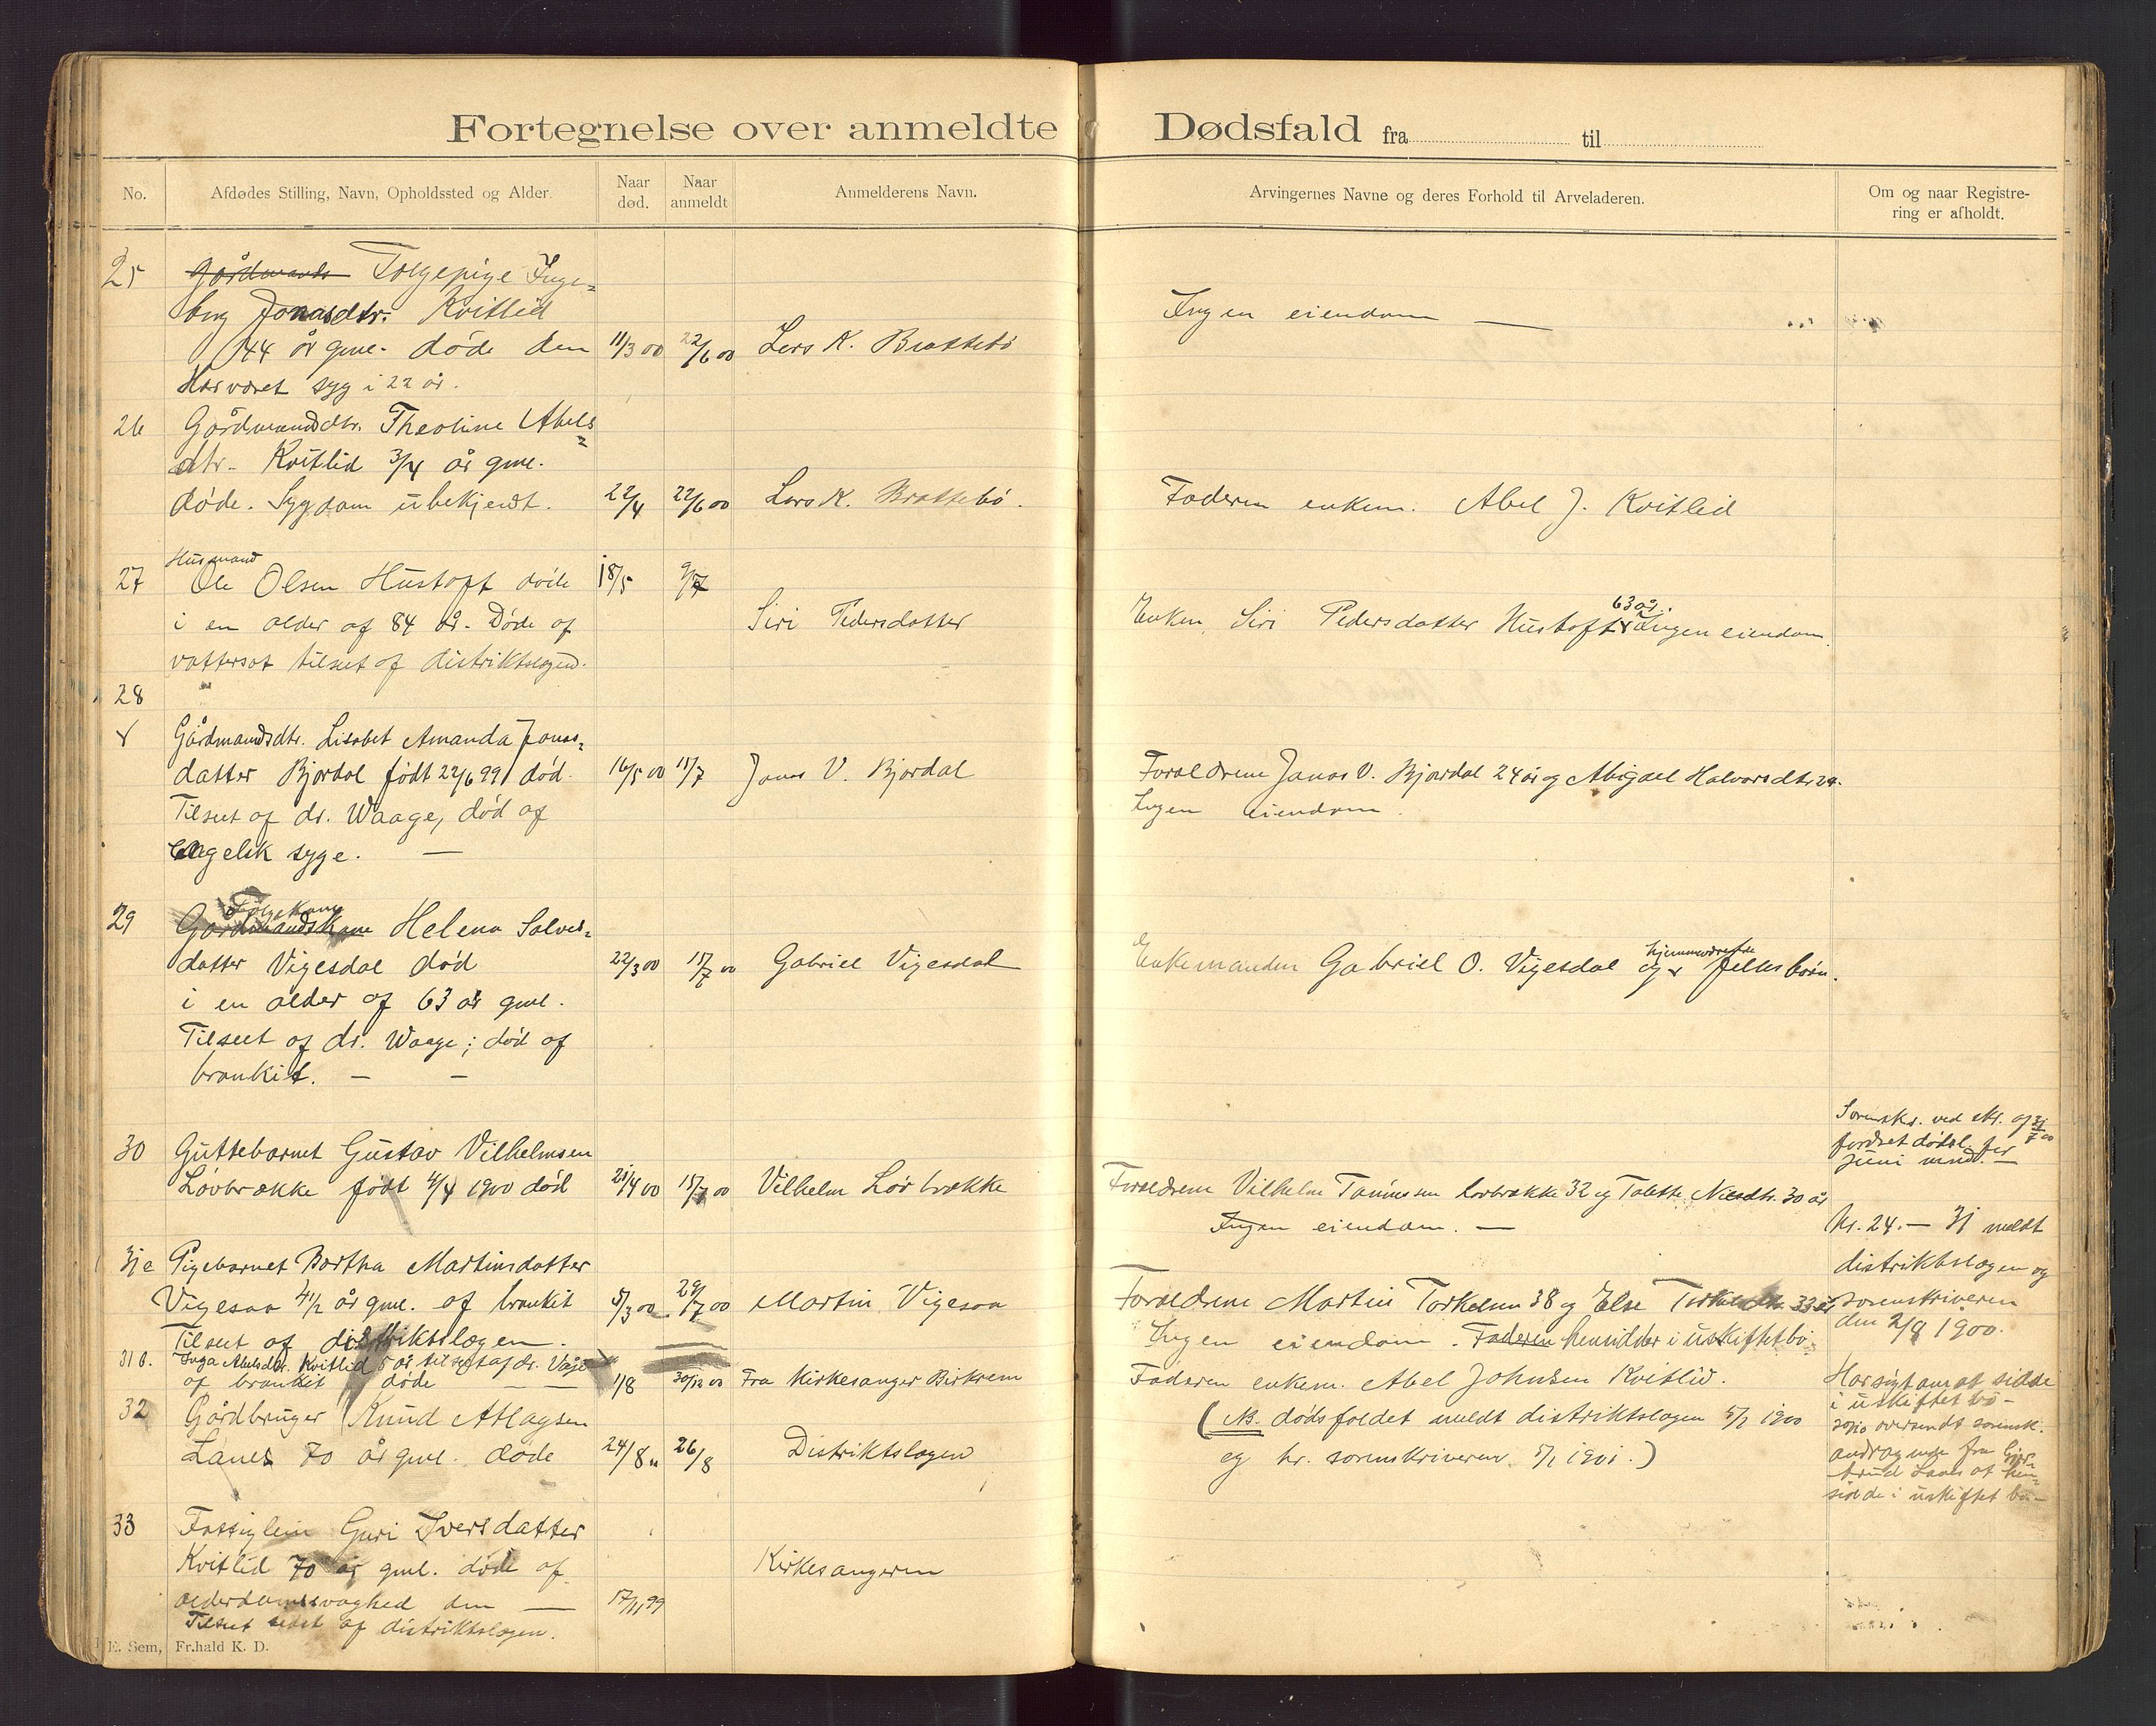 Fortegnelse over anmeldte Dødsfald fra til
No.
Afdødes Stilling, Navn, Opholdssted og Alder.
Naar død.
Naar anmeldt
Anmelderens Navn.
Arvingernes Navne og deres Forhold til Arveladeren.
Om og naar Registrering er afholdt.
25 Gårdmands Tolgepige Inge=
borg Jonasdtr. Kvitlid
44 år gml. døde den 11/3 00 22/6 00 Lars K. Brattebø
Har været syg i 22 år.
Ingen eiendom —
26 Gårdmandsdtr. Theoline Abels=
dtr. Kvitlid 3/4 år gml.
døde. Sygdom ubekjendt. 22/4 22/6 00 Lars K. Brattebø.
Faderen enkem. Abel J. Kvitlid
27 Husmand
Ole Olsen Hustoft døde 18/5 9/7
i en alder af 84 år. Døde af Siri Pedersdatter
vattersot tilseet af distriktslægen.
Enken Siri Pedersdatter Hustoft 63 år. Ingen eiendom.
28
Gårdmandsdtr. Lisabet Amanda Jonas=
datter Bjordal født 22/6 99 død 16/5 00 11/7 Jonas V. Bjordal
Tilseet af dr. Waage, død af
engelsk syge. —
Foreldrene Jonas V. Bjordal 24 år og Abigael Halvorsdtr 24.
Ingen eiendom.
29 Følgekone
Gårdmandskone Helena Salves=
datter Vigesdal død 22/3 00 11/7 00 Gabriel Vigesdal
i en alder af 63 år gml.
Tilseet af dr. Waage; død af
bronkit. — —
Enkemanden Gabriel O. Vigesdal og hjemmeværende fælles børn.
30 Guttebarnet Gustav Vilhelmsen
Løvbrække født 4/4 1900 død 21/4 00 15/7 00 Vilhelm Løvbrække
Foreldrene Vilhelm Tønnessen Løvbrække 32 og Tabette Nilsdtr. 30 år
Ingen eiendom. —
Sorenskr. ved skr. af 31/7 00
fordret dødsl. for
juni mnd. —
Nr. 24. — 31 meldt
distriktslægen og
sorenskriveren
den 2/8 1900.
31 a Pigebarnet Bertha Martinsdatter
Vigesaa 4 1/2 år gml. af bronkit 5/3 00 29/7 00 Martin Vigesaa
Tilseet af distriktslægen.
Foreldrene Martin Torkelsen 38 og Else 33 år
Ingen eiendom. Faderen hensidder i uskiftet bo.
31 b. Inga Abelsdtr. Kvitlid 5 år tilseet af dr.
af bronkit døde — — 1/8 30/12 00 Fra Kirkesanger Birkrem
Faderen enkem. Abel Johnsen Kvitlid.
(NB. dødsfaldet meldt distriktslægen 5/1 1900
og hr. sorenskriveren 5/1 1901.)
32 Gårdbruger Knud Atlagsen
Lanes 70 år gml. døde 24/8 26/8 Distriktslægen
Har søgt om at sidde
i uskiftet bo —
oversendt sorensk.
andragende fra
Lanes at hen=
sidde i uskiftet bo —
33 Fattiglem Guri Iversdatter
Kvitlid 70 år gml. døde af Kirkesangeren
alderdomssvaghed den — 17/11 99
Tilseet sidst af distriktslægen.
E. Sem, Fr.hald K. D.